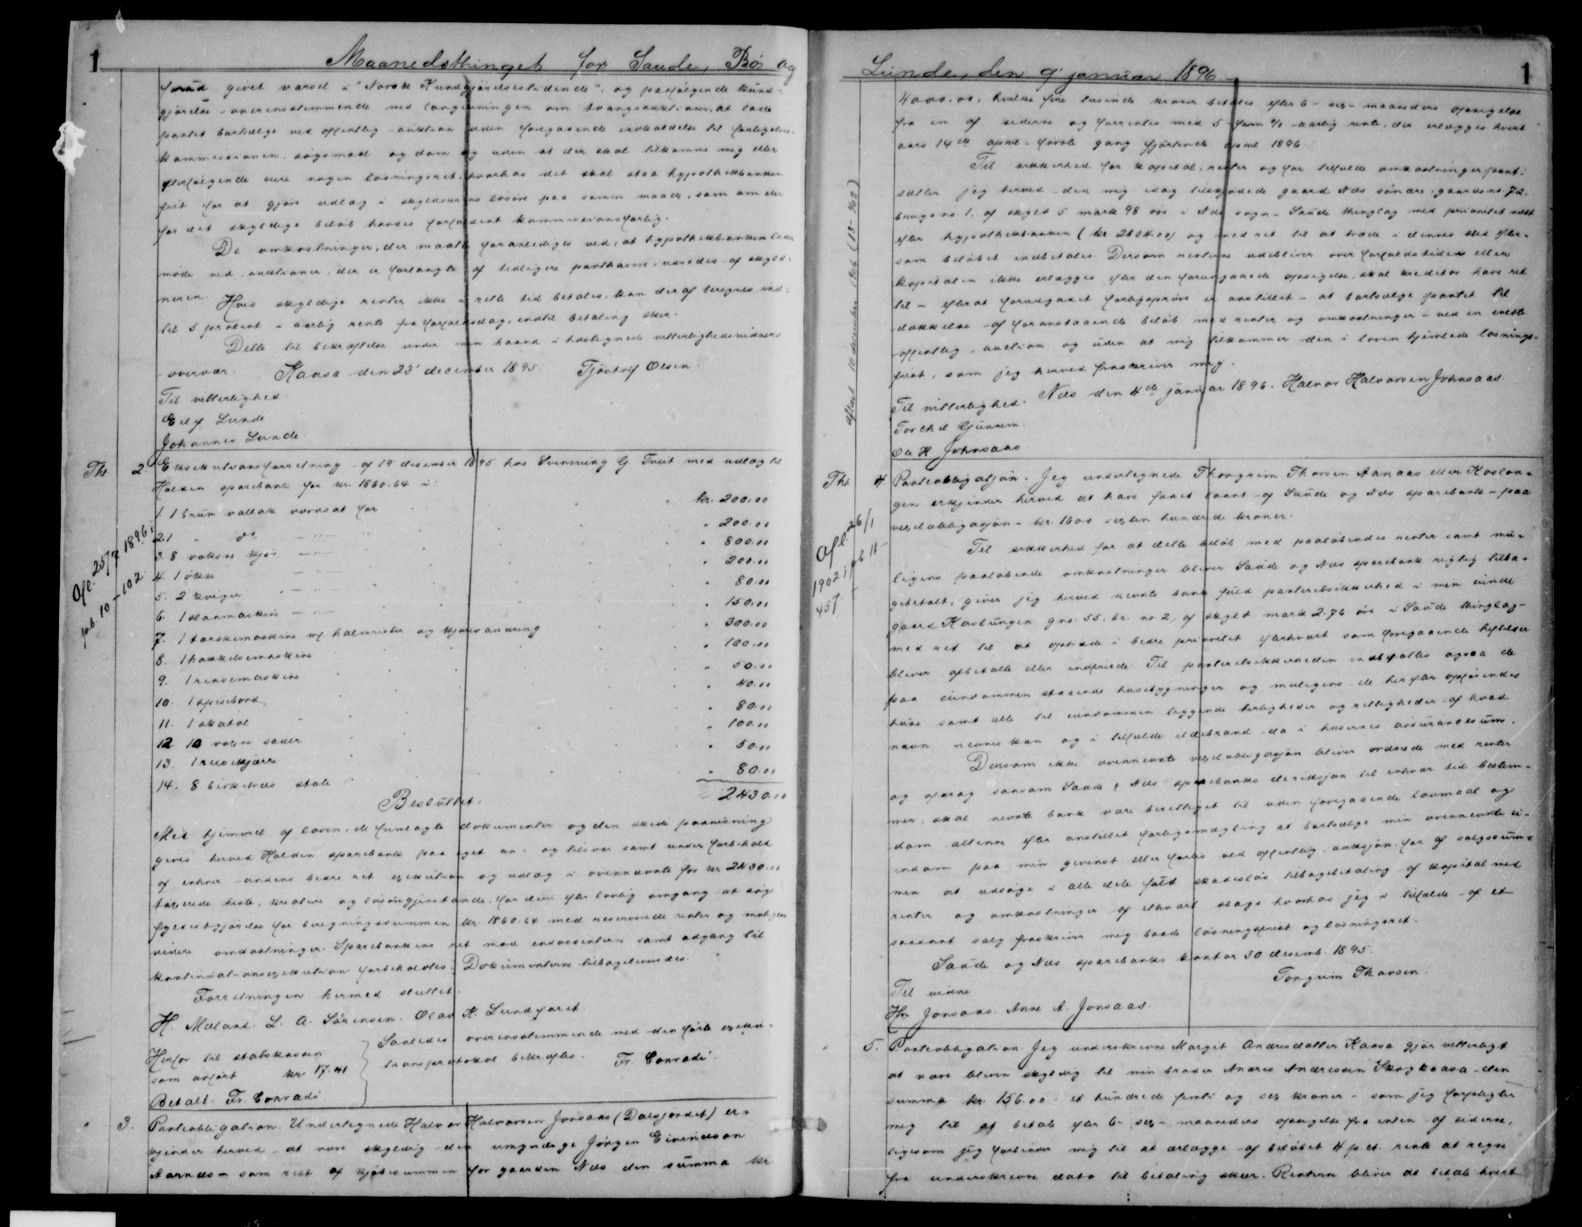 1
Maanedsthinget for Saude, Bø og
forud givet varsel i "Norsk Kundgjørelsestidende", og paafølgende kund-
gjørelse overensstemmende med lovgivningen om tvangsauktioner, at lade
pantet bortsælge ved offentlig auktion uden foregaaende indkaldelse til forligelses-
kommissionen, søgsmaal og dom og uden at der skal tilkomme mig eller
efterfølgende eiere nogen løsningsret, hvorhos det skal staa hypothekbanken
frit for at gjøre udlæg i skyldnerens løsøre paa samme maade, som om der
for det skyldige beløb havdes forfaldent kommissionsforlig.
De omkostninger, der maatte foranlediges ved, at hypothekbanken lader
møde ved auktioner, der er forlangte af tidligere panthavere, udredes af skyld-
neren. Hvis skyldige renter ikke i rette tid betales, kan der af beregnes ind-
til 5 procent i aarlig rente fra forfaldsdag, indtil betaling sker.
Dette til bekræftelse under min haand i hostegnede vitterlighedsvidners
overvær. Kaasa den 23' december 1895. Tjøstolf Olsen.
Til vitterlighed.
Eily Lunde
Johannes Lunde.
Thl 2 Eksekutionsforretning af 19 desember 1895 hos Svennung G. Tveit med udlæg til
Holden sparebank for kr. 1860.64 i:
Afl. 25/7 1896,
pb. 10 - 102
1. 1 brun vallak vurderet for kr. 200.00
2. 1 " do " 200.00
3. 8 voksne kjør " 800.00
4. 1 okse " 200.00
5. 2 kviger " 80.00
6. 1 slaamaskine " 150.00
7. 1 tærskemaskine m/ halmrister og kjørevandring " 300.00
8. 1 hakkelsemaskine " 100.00
9. 1 rensemaskine " 50.00
10. 1 spisebord " 40.00
11. 1 skatol " 80.00
12. 10 vogne sæder " 100.00
13. 1 reisekjærre " 50.00
14. 8 birketræs stole " 80.00
2430.00
Besluttet:
Med hjemmel af loven, de fremlagte dokumenter og den skede paavisning
gives herved Holden sparebank paa eget an- og tilsvar samt under forbehold
af enhver andens bedre ret exekution og udlæg i ovennævnte for kr. 2430.00
taxerede heste, kreature og løsøregjenstande, for deri efter lovlig omgang at søge
fyldestgjørelse for beregningssummen kr. 1860.64 med reserverede renter og muligens
videre omkostninger. Sparebankens ret mod endossenterne samt adgang til
kontinuationsexekution forbeholdes. Dokumenterne tilbageleveredes.
Forretningen hermed sluttet.
H. Mæland. L. A. Sørensen. Olav K. Lundefaret.
Herfor til statskassen
som anført kr 17.41
Betalt. Fr. Conradi
Saaledes overensstemmende med den førte exeku-
tionsprotokol bekræftes. Fr. Conradi.
3. Panteobligation. Undertegnede Halvor Halvorsen Jonsaas (Dalsjordet) er-
kjender herved at være skyldig den umyndige Jørgen Eivindsen
Aarnes - som rest af kjøbesummen for gaarden Nes den summa kr.
Lunde, den 9' januar 1896
1
4000.00, hvilke fire tusinde kroner betales efter 6 - sex - maaneders opsigelse
fra en af siderne og forrentes med 5 - fem % aarlig rente, der erlægges hvert
aars 14de april - første gang førstkommende april 1896
Til sikkerhed for kapital, renter og for tilfælde omkostninger pant-
sætter jeg herved den mig idag tilskjødede gaard Nes søndre, gaardsno 72,
brugsno 1, af skyld 5 mark 98 øre i Nes sogn - Saude thinglag med prioritet næst
efter hypothekbanken (kr. 2804.00) og med ret til at træde i dennes sted efter-
som beløbet indbetales. Dersom renterne udebliver over forfaldstiden eller
kapitalen ikke erlægges efter den forudgaaede opsigelse, skal kreditor have ret
til - efterat forudgaaet forligsprøve er anstillet - at bortsælge pantet til
dækkelse af foranstaaende beløb med renter og omkostninger - ved en eneste
offentlig auction og uden at mig tilkommer den i loven hjemlede løsnings-
frist, som jeg herved fraskriver mig.
Nes den 4de januar 1896. Halvor Halvorsen Johnsaas
Til vitterlighed.
Torkel Gunnem.
Ole H. Johnsaas
aflæst 10 december 1906 (13-462)
Thl 4 Panteobligation. Jeg undertegnede Thorgrim Thorsen Aanaas eller Kaslon-
gen erkjender herved at have faaet laant af Saude og Nes sparebank - paa
vexelobligasjon - kr. 1600 sexten hundrede kroner.
Afl. 26/1
1902, pb. 11 -
457.
Til sikkerhed for at dette beløb med paaløbendes renter samt mu-
ligens paaløbende omkostninger bliver Saude og Nes sparebank rigtig tilba-
gebetalt, giver jeg herved nevnte bank fuld panteretssikkerhed i min eiende
gaard Kaslungen gno. 55, br. no 2, af skyld mark 2.76 øre i Saude thinglag -
med ret til at optræde i bedre prioritet efterhvert som foregaaende heftelser
bliver afbetalte eller indfriede. Til panteretssikkerheden indbefattes ogsaa de
paa eiendommen staaende husebygninger og muligens de herefter opførendes
huse samt alle til eiendommen liggende herligheder og rettigheder af hvad
navn nevnes kan og i tilfælde ildebrand da i husernes assurancesum.
Dersom ikke ovennevnte vexelobligasjon bliver ordnede med renter
og afdrag saasom Saude & Nes sparebanks direksjon til enhver tid bestem-
mer, skal nevnte bank være berettiget til uden foregaaende lovmaal og
dom allene efter anstillet forligsmægling at bortsælge min ovennevnte ei-
endom paa min gevinst eller forlis ved offentlig auksjon for af salgssum-
men at udsøge i alle dele fuld skadesløs tilbagebetaling af kapital med
renter og omkostninger af ethvert slags hvorhos jeg i tilfælde af et
saadant salg fraskriver mig baade løsningsfrist og løsningsret.
Saude og Nes sparebanks kontor 30 desemb. 1895.
Torgrim Thorsen.
Til vidne
Hr. Jonsaas. Anne A. Jonsaas
5. Panteobligation. Jeg underskrevne Margit Andersdatter Kaasa gjør vitterligt
at være bleven skyldig til min broder Anders Andersen Skogkaasa den
summa kr. 156.00 - et hundrede femti og sex kroner - som jeg forpligter
mig til at betale efter 6 - sex - maaneders opsigelse fra enten af siderne,
ligesom jeg forbinder mig til at erlægge af beløbet 4 pct. rente at regne
fra underskrevne dato til betaling sker. Renterne bliver at betale hvert